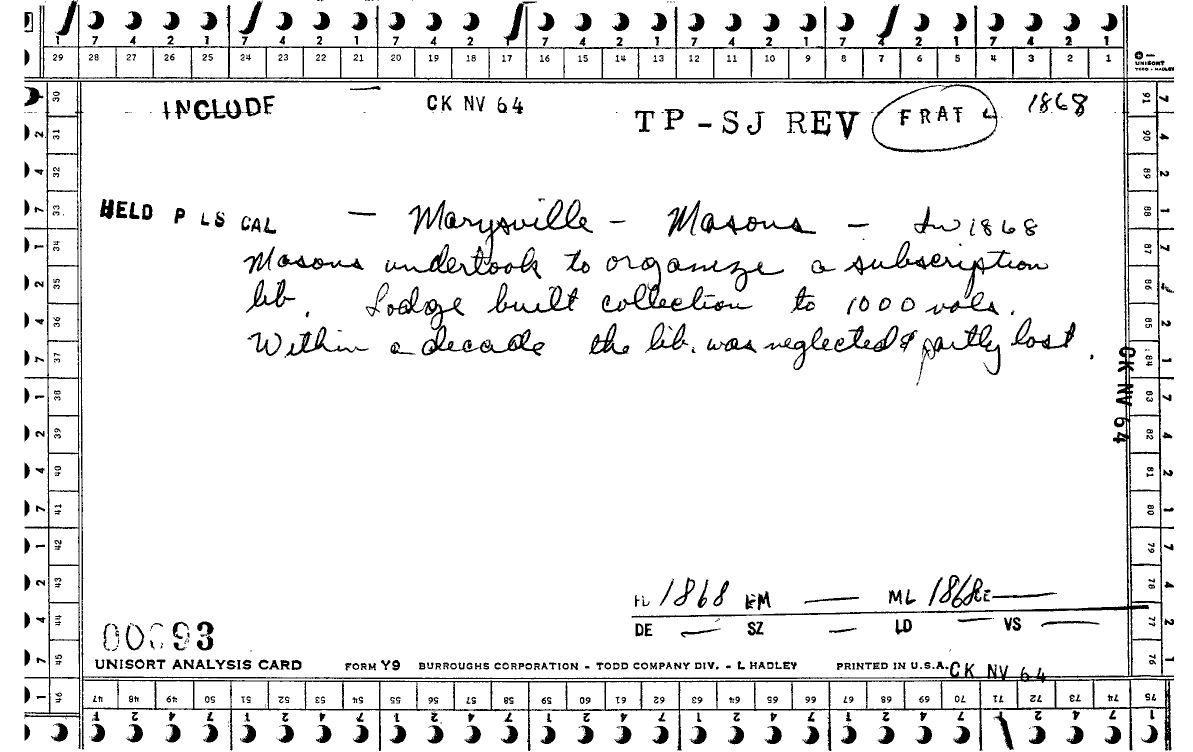 7 4 2 1 7 4 2 1 7 4 2 1 7 4 2 1 7 4 2 1 7 4 2 1 7 4 2 1
29 28 27 26 25 24 23 22 21 20 19 18 17 16 15 14 13 12 11 10 9 8 7 6 5 4 3 2 1
UNISORT
TODD - HADLEY
INCLUDE — CK NV 64 TP-SJ REV FRAT 1868
HELD P LS CAL — Marysville — Masons — In 1868
Masons undertook to organize a subscription
lib. Lodge built collection to 1000 vols.
Within a decade the lib. was neglected & partly lost.
CK NV 64
FD 1868 EM — ML 1868 CE —
DE — SZ — LD — VS —
00093
UNISORT ANALYSIS CARD FORM Y9 BURROUGHS CORPORATION - TODD COMPANY DIV. - L HADLEY PRINTED IN U.S.A. CK NV 64
30 31 32 33 34 35 36 37 38 39 40 41 42 43 44 45 46
91 90 89 88 87 86 85 84 83 82 81 80 79 78 77 76 75
47 48 49 50 51 52 53 54 55 56 57 58 59 60 61 62 63 64 65 66 67 68 69 70 71 72 73 74 75